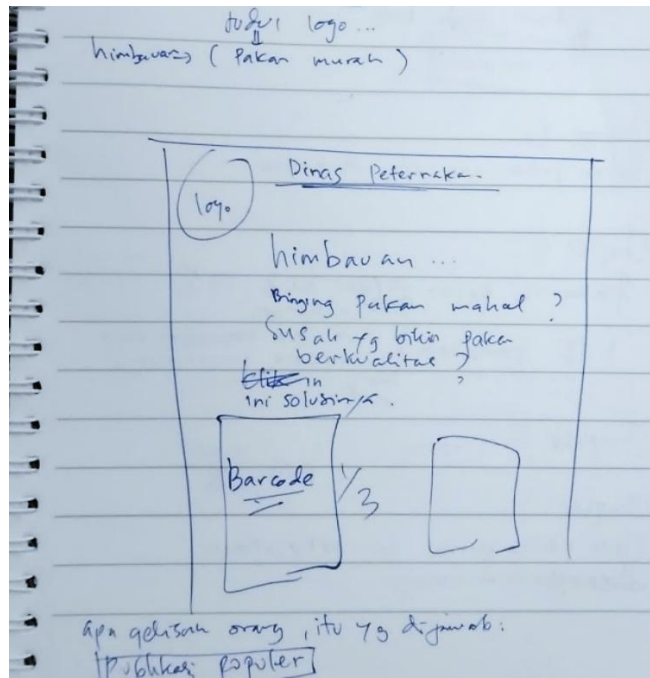 judul logo...
himbauan => ( Pakan murah )
Dinas Peternakan
logo
himbauan ...
Bingung Pakan mahal ?
Susah yg bikin paken
berkualitas ?
ini solusinya.
Barcode
1/3
apa gelisah orang, itu yg dijawab:
Publikasi populer